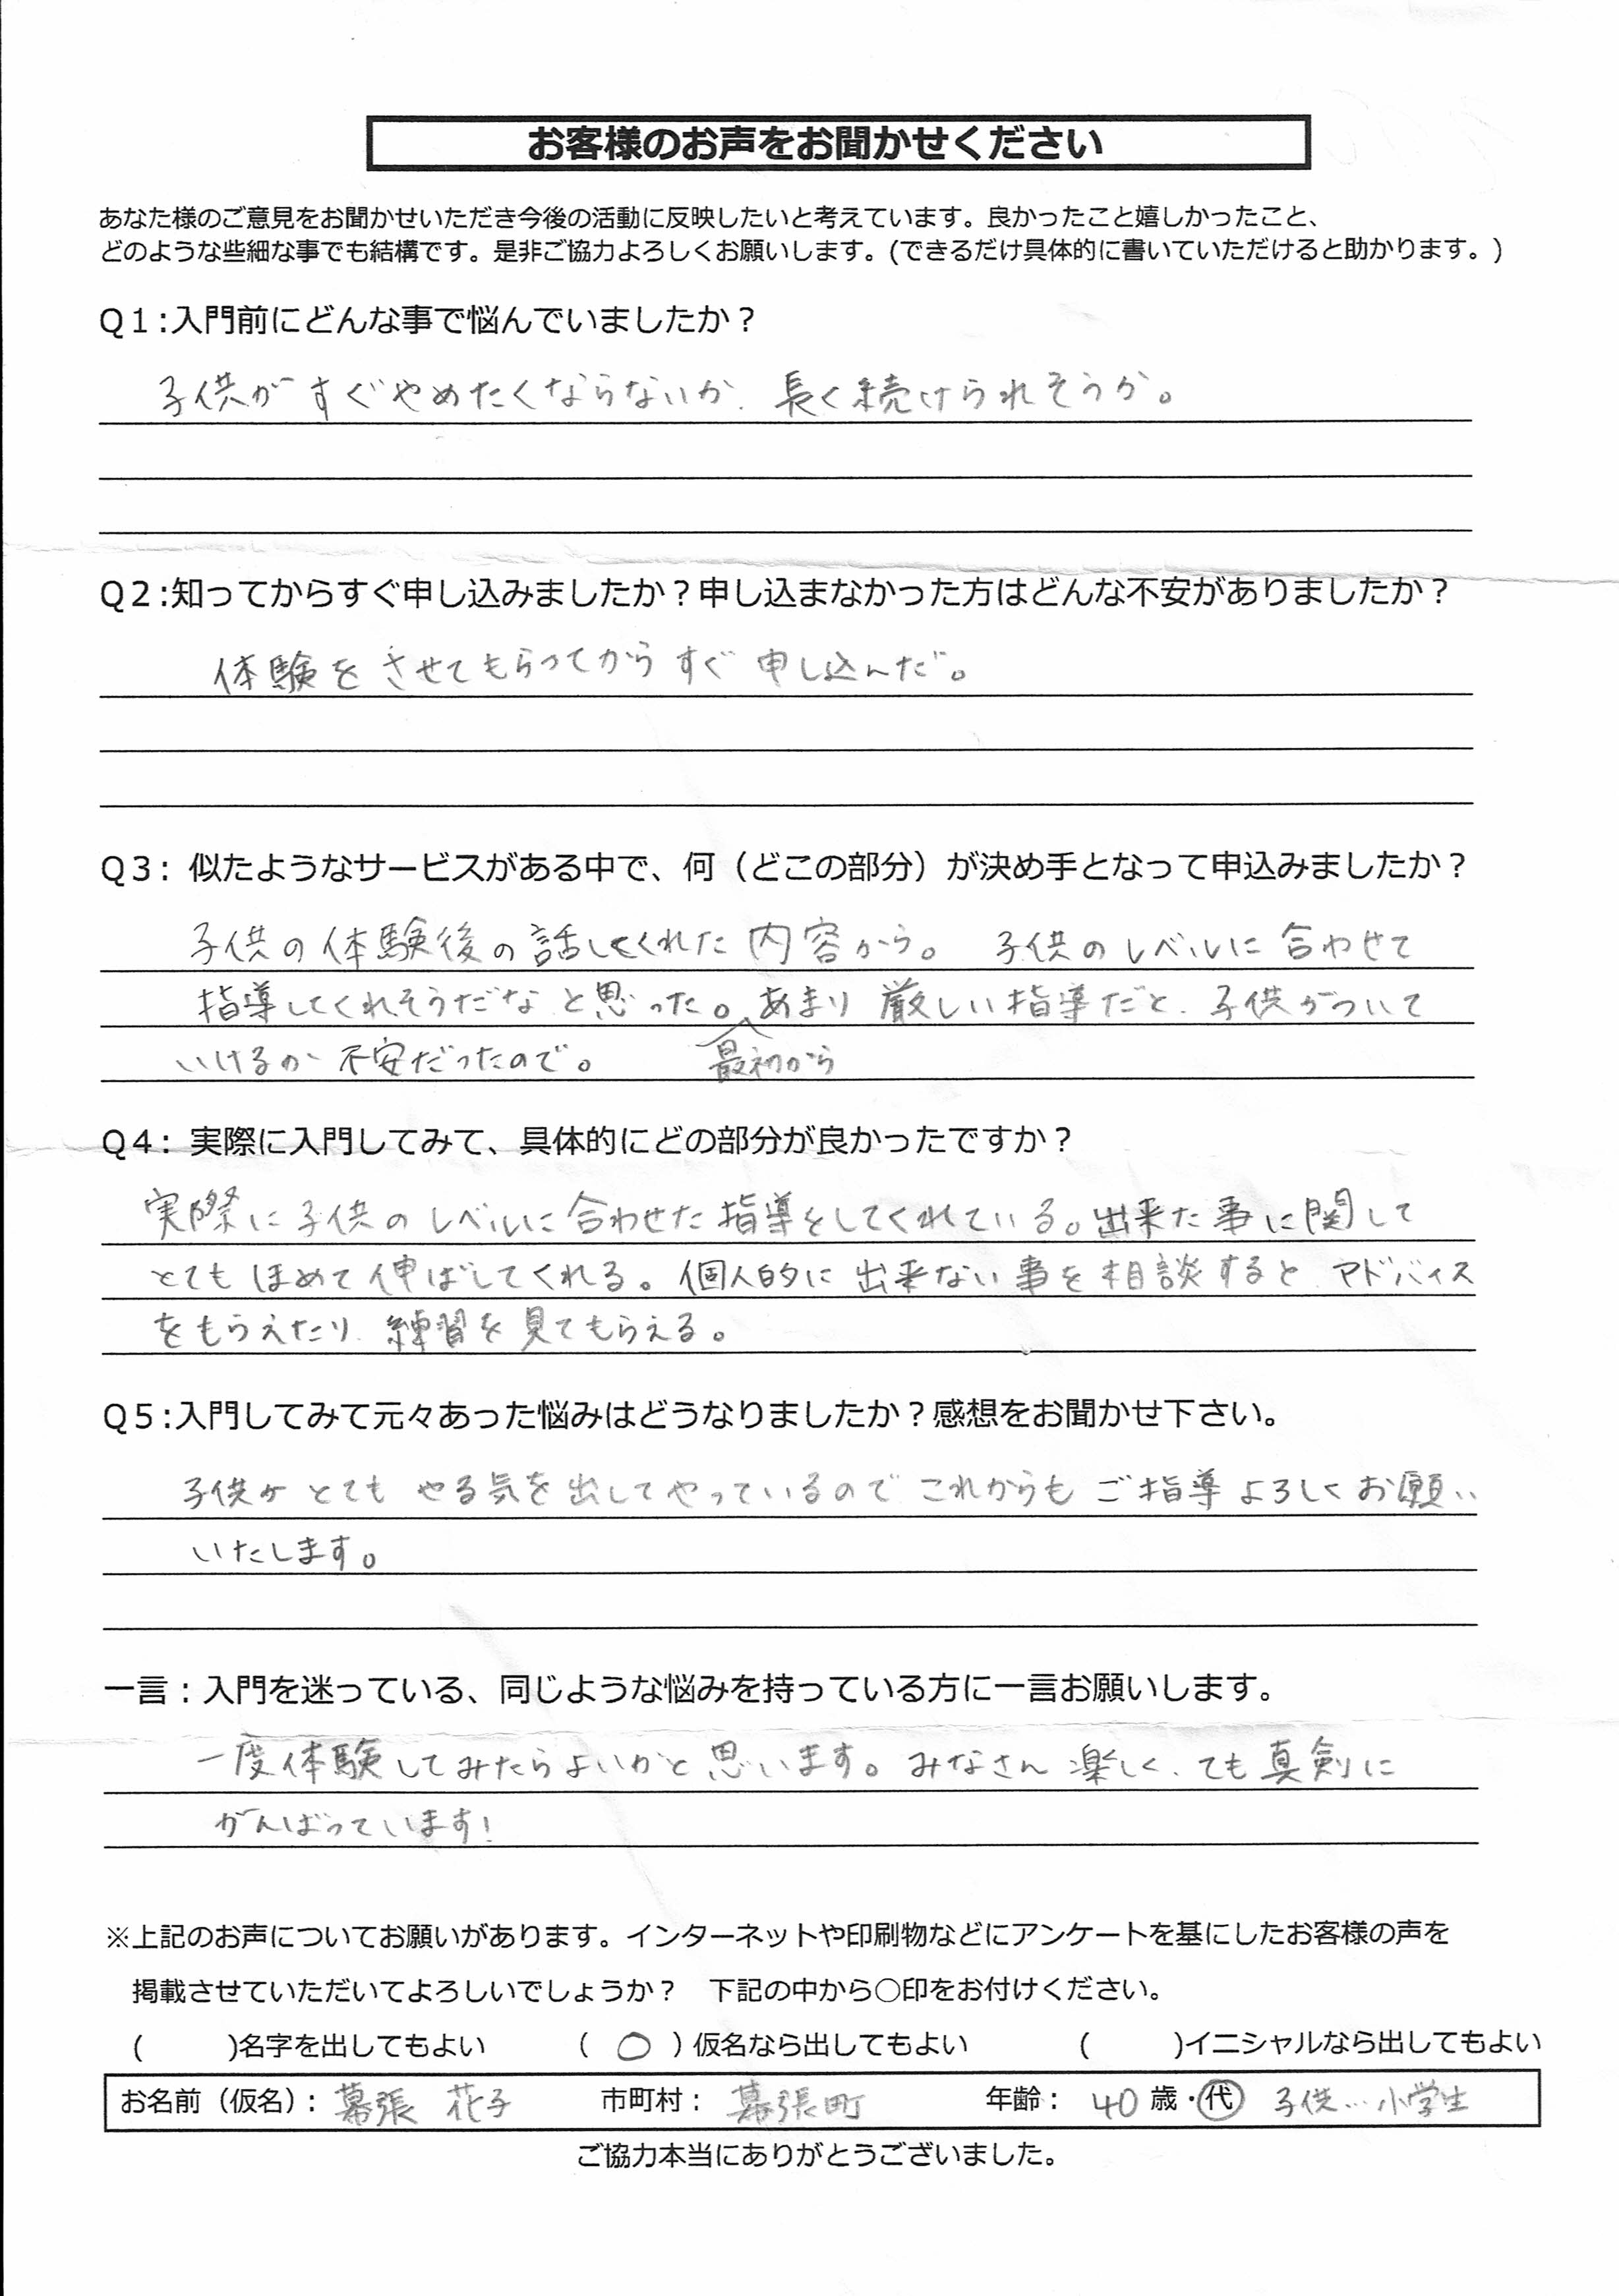 お客様のお声をお聞かせください
あなた様のご意見をお聞かせいただき今後の活動に反映したいと考えています。良かったこと嬉しかったこと、
どのような些細な事でも結構です。是非ご協力よろしくお願いします。(できるだけ具体的に書いていただけると助かります。)
Q1:入門前にどんな事で悩んでいましたか？
子供がすぐやめたくならないか、長く続けられそうか。
Q2:知ってからすぐ申し込みましたか？申し込まなかった方はどんな不安がありましたか？
体験をさせてもらってからすぐ申し込んだ。
Q3: 似たようなサービスがある中で、何（どこの部分）が決め手となって申込みましたか？
子供の体験後の話してくれた内容から。 子供のレベルに合わせて
指導してくれそうだなと思った。あまり厳しい指導だと、子供がついて
いけるか不安だったので。 最初から
Q4: 実際に入門してみて、具体的にどの部分が良かったですか？
実際に子供のレベルに合わせた指導をしてくれている。出来た事に関して
とてもほめて伸ばしてくれる。個人的に出来ない事を相談すると、アドバイス
をもらえたり、練習を見てもらえる。
Q5:入門してみて元々あった悩みはどうなりましたか？感想をお聞かせ下さい。
子供がとてもやる気を出してやっているのでこれからもご指導よろしくお願い
いたします。
一言：入門を迷っている、同じような悩みを持っている方に一言お願いします。
一度体験してみたらよいかと思います。みなさん楽しく、ても真剣に
がんばっています!
※上記のお声についてお願いがあります。インターネットや印刷物などにアンケートを基にしたお客様の声を
掲載させていただいてよろしいでしょうか？ 下記の中から○印をお付けください。
( )名字を出してもよい ( ○ )仮名なら出してもよい ( )イニシャルなら出してもよい
お名前（仮名）： 幕張 花子 市町村： 幕張町 年齢： 40 歳・代 子供…小学生
ご協力本当にありがとうございました。